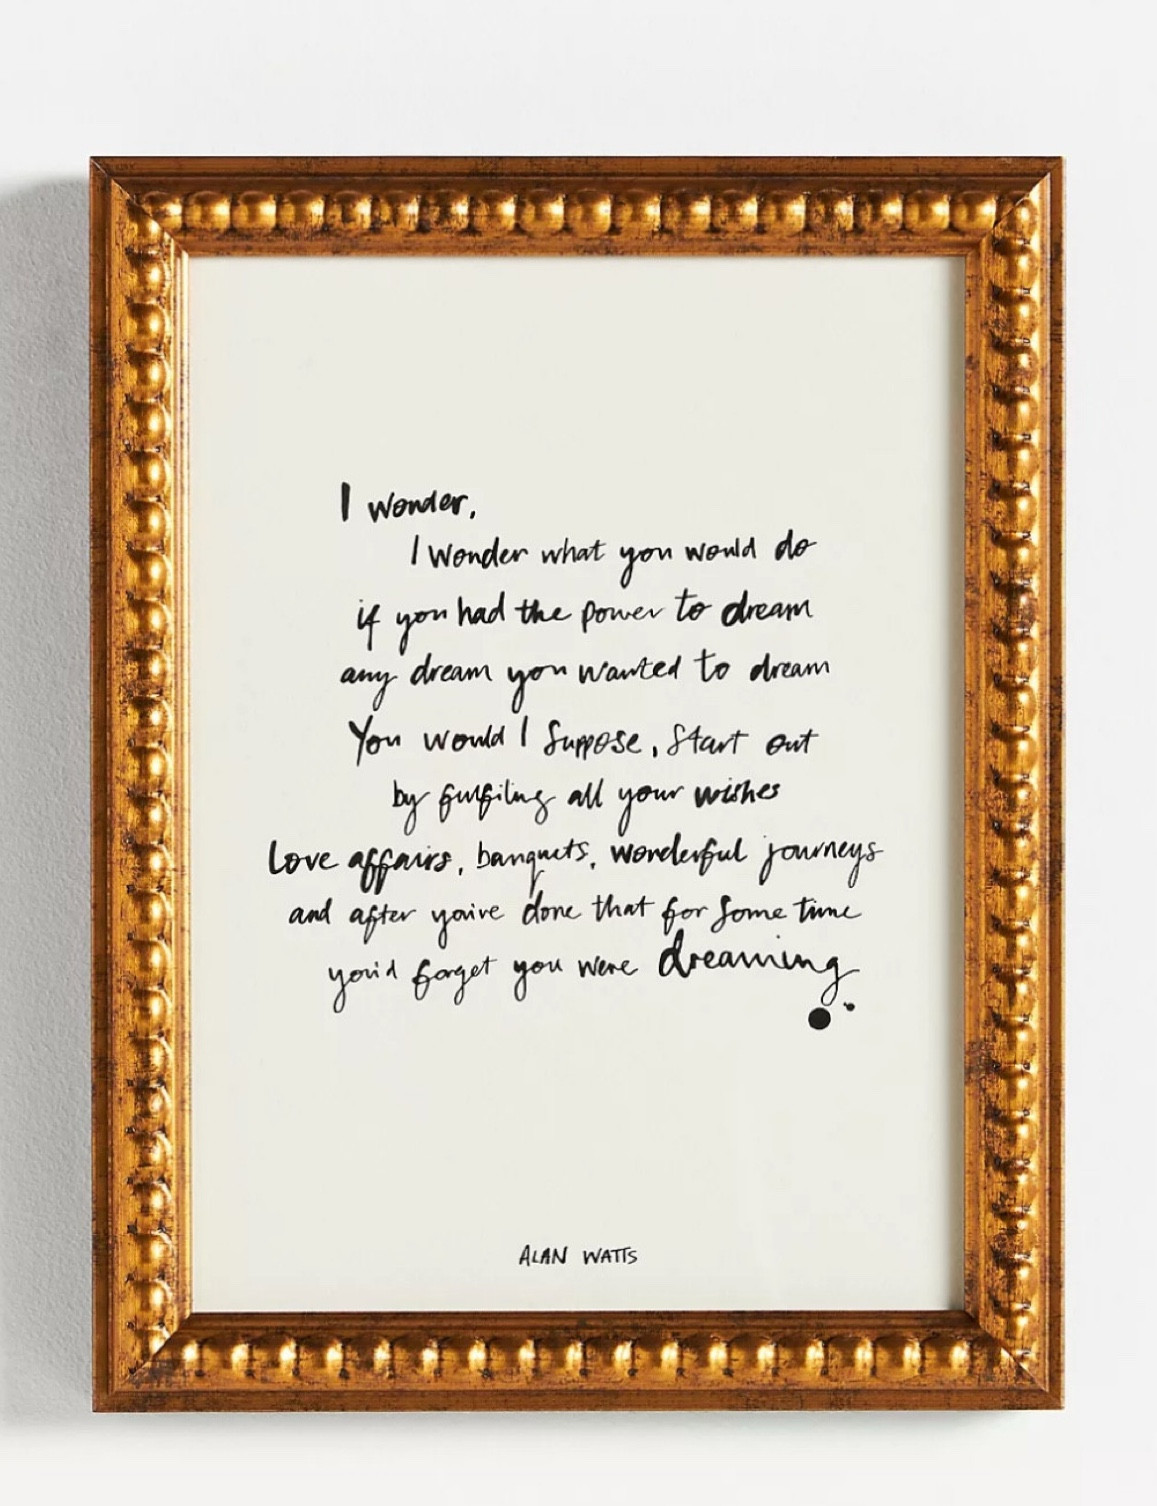 I wonder,
I wonder what you would do
if you had the power to dream
any dream you wanted to dream
You would I suppose, start out
by fulfiling all your wishes
Love affairs, banquets, wonderful journeys
and after you've done that for some time
you'd forget you were dreaming
ALAN WATTS